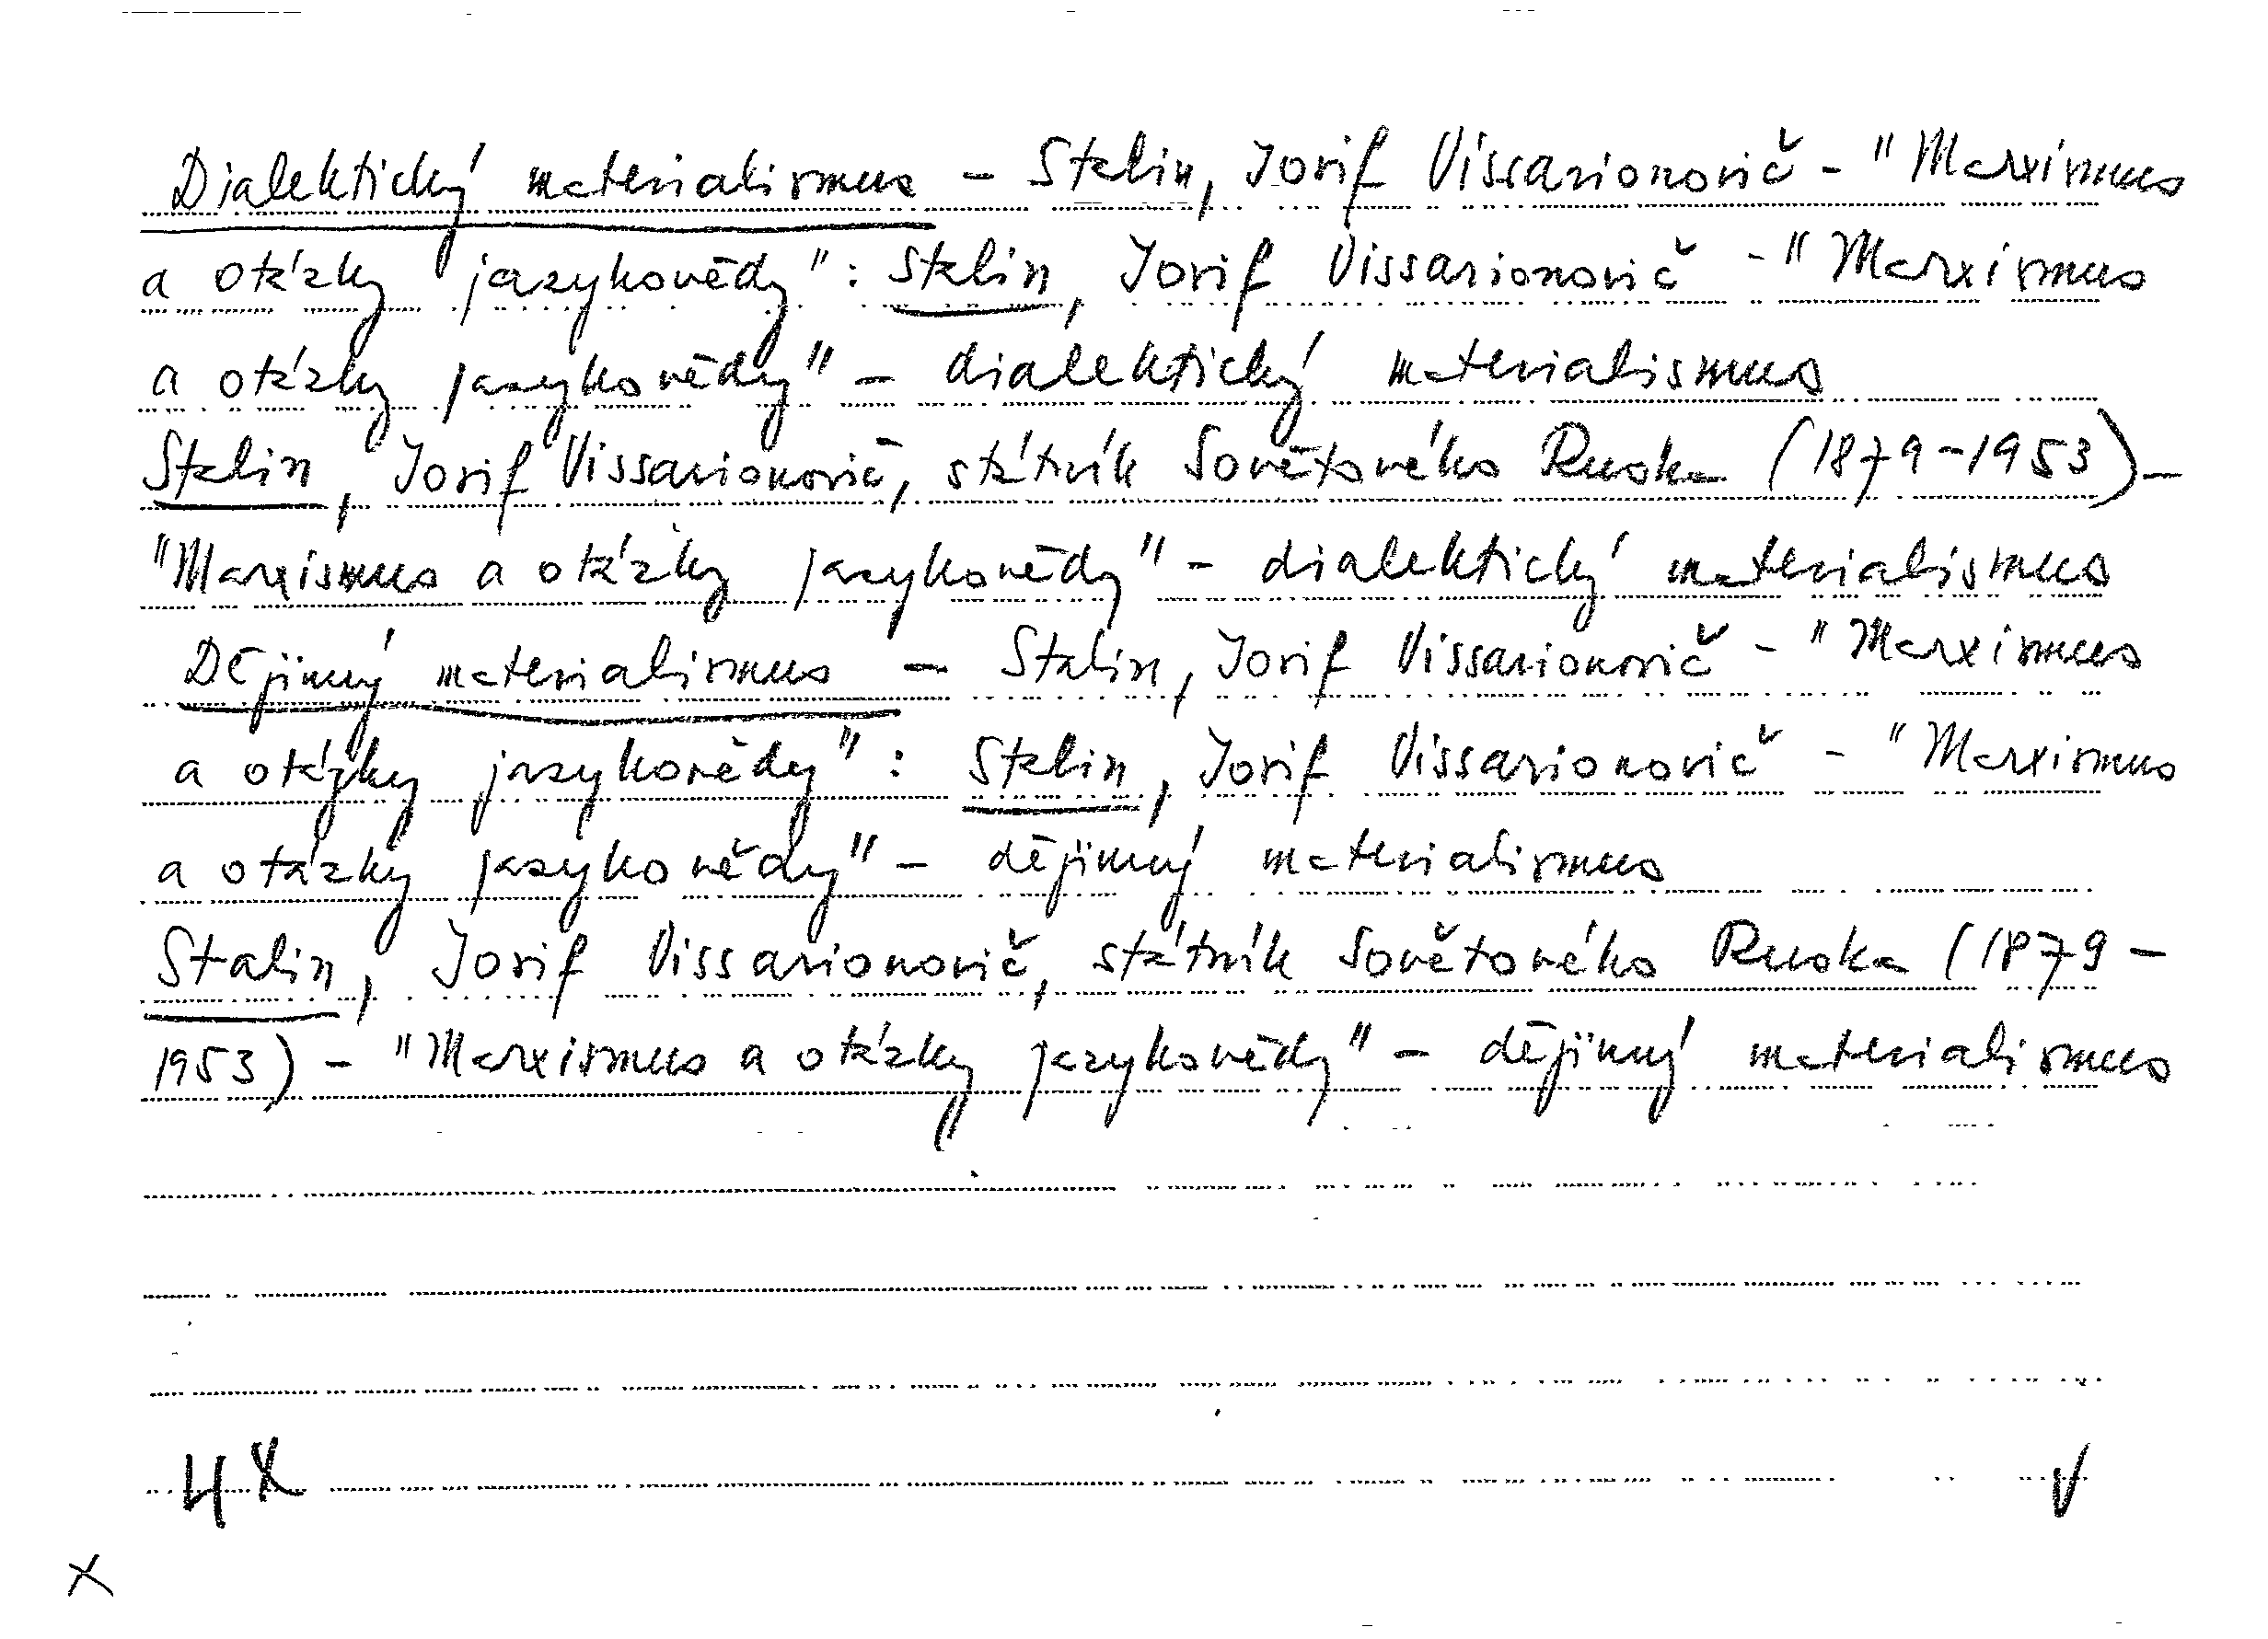 Dialektický materialismus – Stalin, Josif Vissarionovič - "Marxismus
a otázky jazykovědy": Stalin, Josif Vissarionovič - "Marxismus
a otázky jazykovědy" – dialektický materialismus
Stalin, Josif Vissarionovič, státník Sovětového Ruska (1879-1953) –
"Marxismus a otázky jazykovědy" - dialektický materialismus
Dějinný materialismus – Stalin, Josif Vissarionovič - "Marxismus
a otázky jazykovědy": Stalin, Josif Vissarionovič - "Marxismus
a otázky jazykovědy" – dějinný materialismus
Stalin, Josif Vissarionovič, státník Sovětového Ruska (1879 –
1953) – "Marxismus a otázky jazykovědy" – dějinný materialismus
4x
x